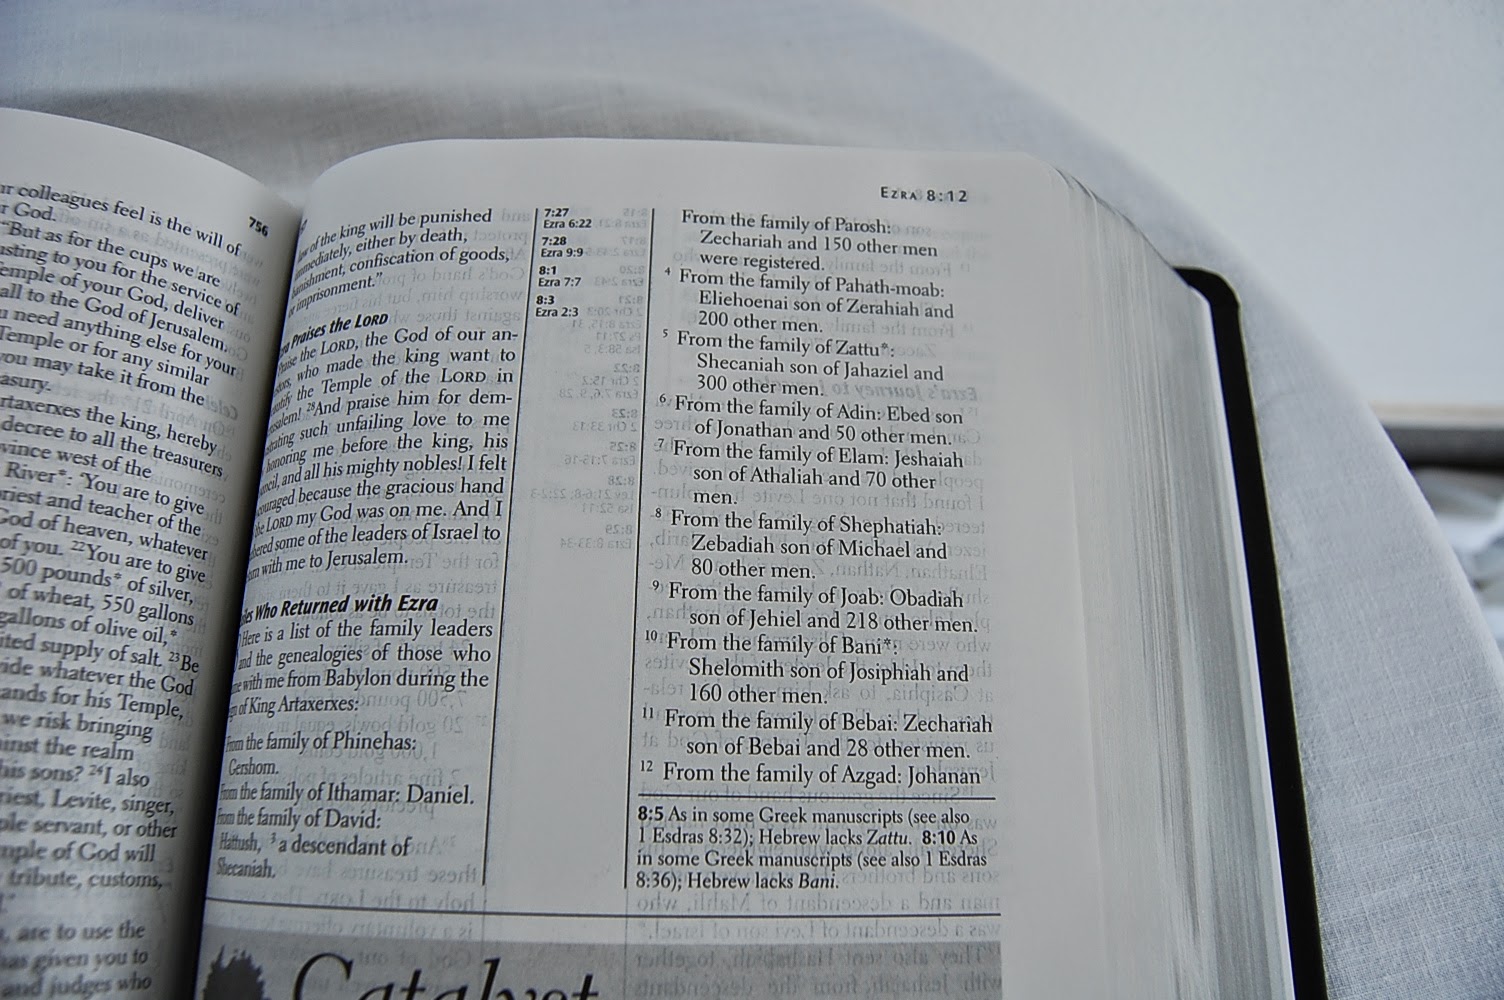 ur colleagues feel is the will of
r God.
"But as for the cups we are
usting to you for the service of
emple of your God, deliver
all to the God of Jerusalem.
u need anything else for your
Temple or for any similar
you may take it from the
asury.
rtaxerxes the king, hereby
decree to all the treasurers
vince west of the
River*: 'You are to give
priest and teacher of the
God of heaven, whatever
of you. 22You are to give
500 pounds* of silver,
of wheat, 550 gallons
gallons of olive oil,*
ited supply of salt. 23Be
vide whatever the God
ands for his Temple,
we risk bringing
inst the realm
his sons? 24I also
riest, Levite, singer,
ple servant, or other
mple of God will
tribute, customs,
are to use the
has given you to
and judges who
756
of the king will be punished
mmediately, either by death,
anishment, confiscation of goods,
or imprisonment."
Praises the LORD
the LORD, the God of our an-
who made the king want to
the Temple of the LORD in
usalem! 28And praise him for dem-
strating such unfailing love to me
honoring me before the king, his
ncil, and all his mighty nobles! I felt
ouraged because the gracious hand
the LORD my God was on me. And I
hered some of the leaders of Israel to
rn with me to Jerusalem.
Who Returned with Ezra
Here is a list of the family leaders
and the genealogies of those who
me with me from Babylon during the
of King Artaxerxes:
From the family of Phinehas:
Gershom.
From the family of Ithamar: Daniel.
From the family of David:
Hattush, 3a descendant of
Shecaniah.
7:27
Ezra 6:22
7:28
Ezra 9:9
8:1
Ezra 7:7
8:3
Ezra 2:3
EZRA 8:12
From the family of Parosh:
Zechariah and 150 other men
were registered.
4 From the family of Pahath-moab:
Eliehoenai son of Zerahiah and
200 other men.
5 From the family of Zattu*:
Shecaniah son of Jahaziel and
300 other men.
6 From the family of Adin: Ebed son
of Jonathan and 50 other men.
7 From the family of Elam: Jeshaiah
son of Athaliah and 70 other
men.
8 From the family of Shephatiah:
Zebadiah son of Michael and
80 other men.
9 From the family of Joab: Obadiah
son of Jehiel and 218 other men.
10 From the family of Bani*:
Shelomith son of Josiphiah and
160 other men.
11 From the family of Bebai: Zechariah
son of Bebai and 28 other men.
12 From the family of Azgad: Johanan
8:5 As in some Greek manuscripts (see also
1 Esdras 8:32); Hebrew lacks Zattu. 8:10 As
in some Greek manuscripts (see also 1 Esdras
8:36); Hebrew lacks Bani.
Catalyst